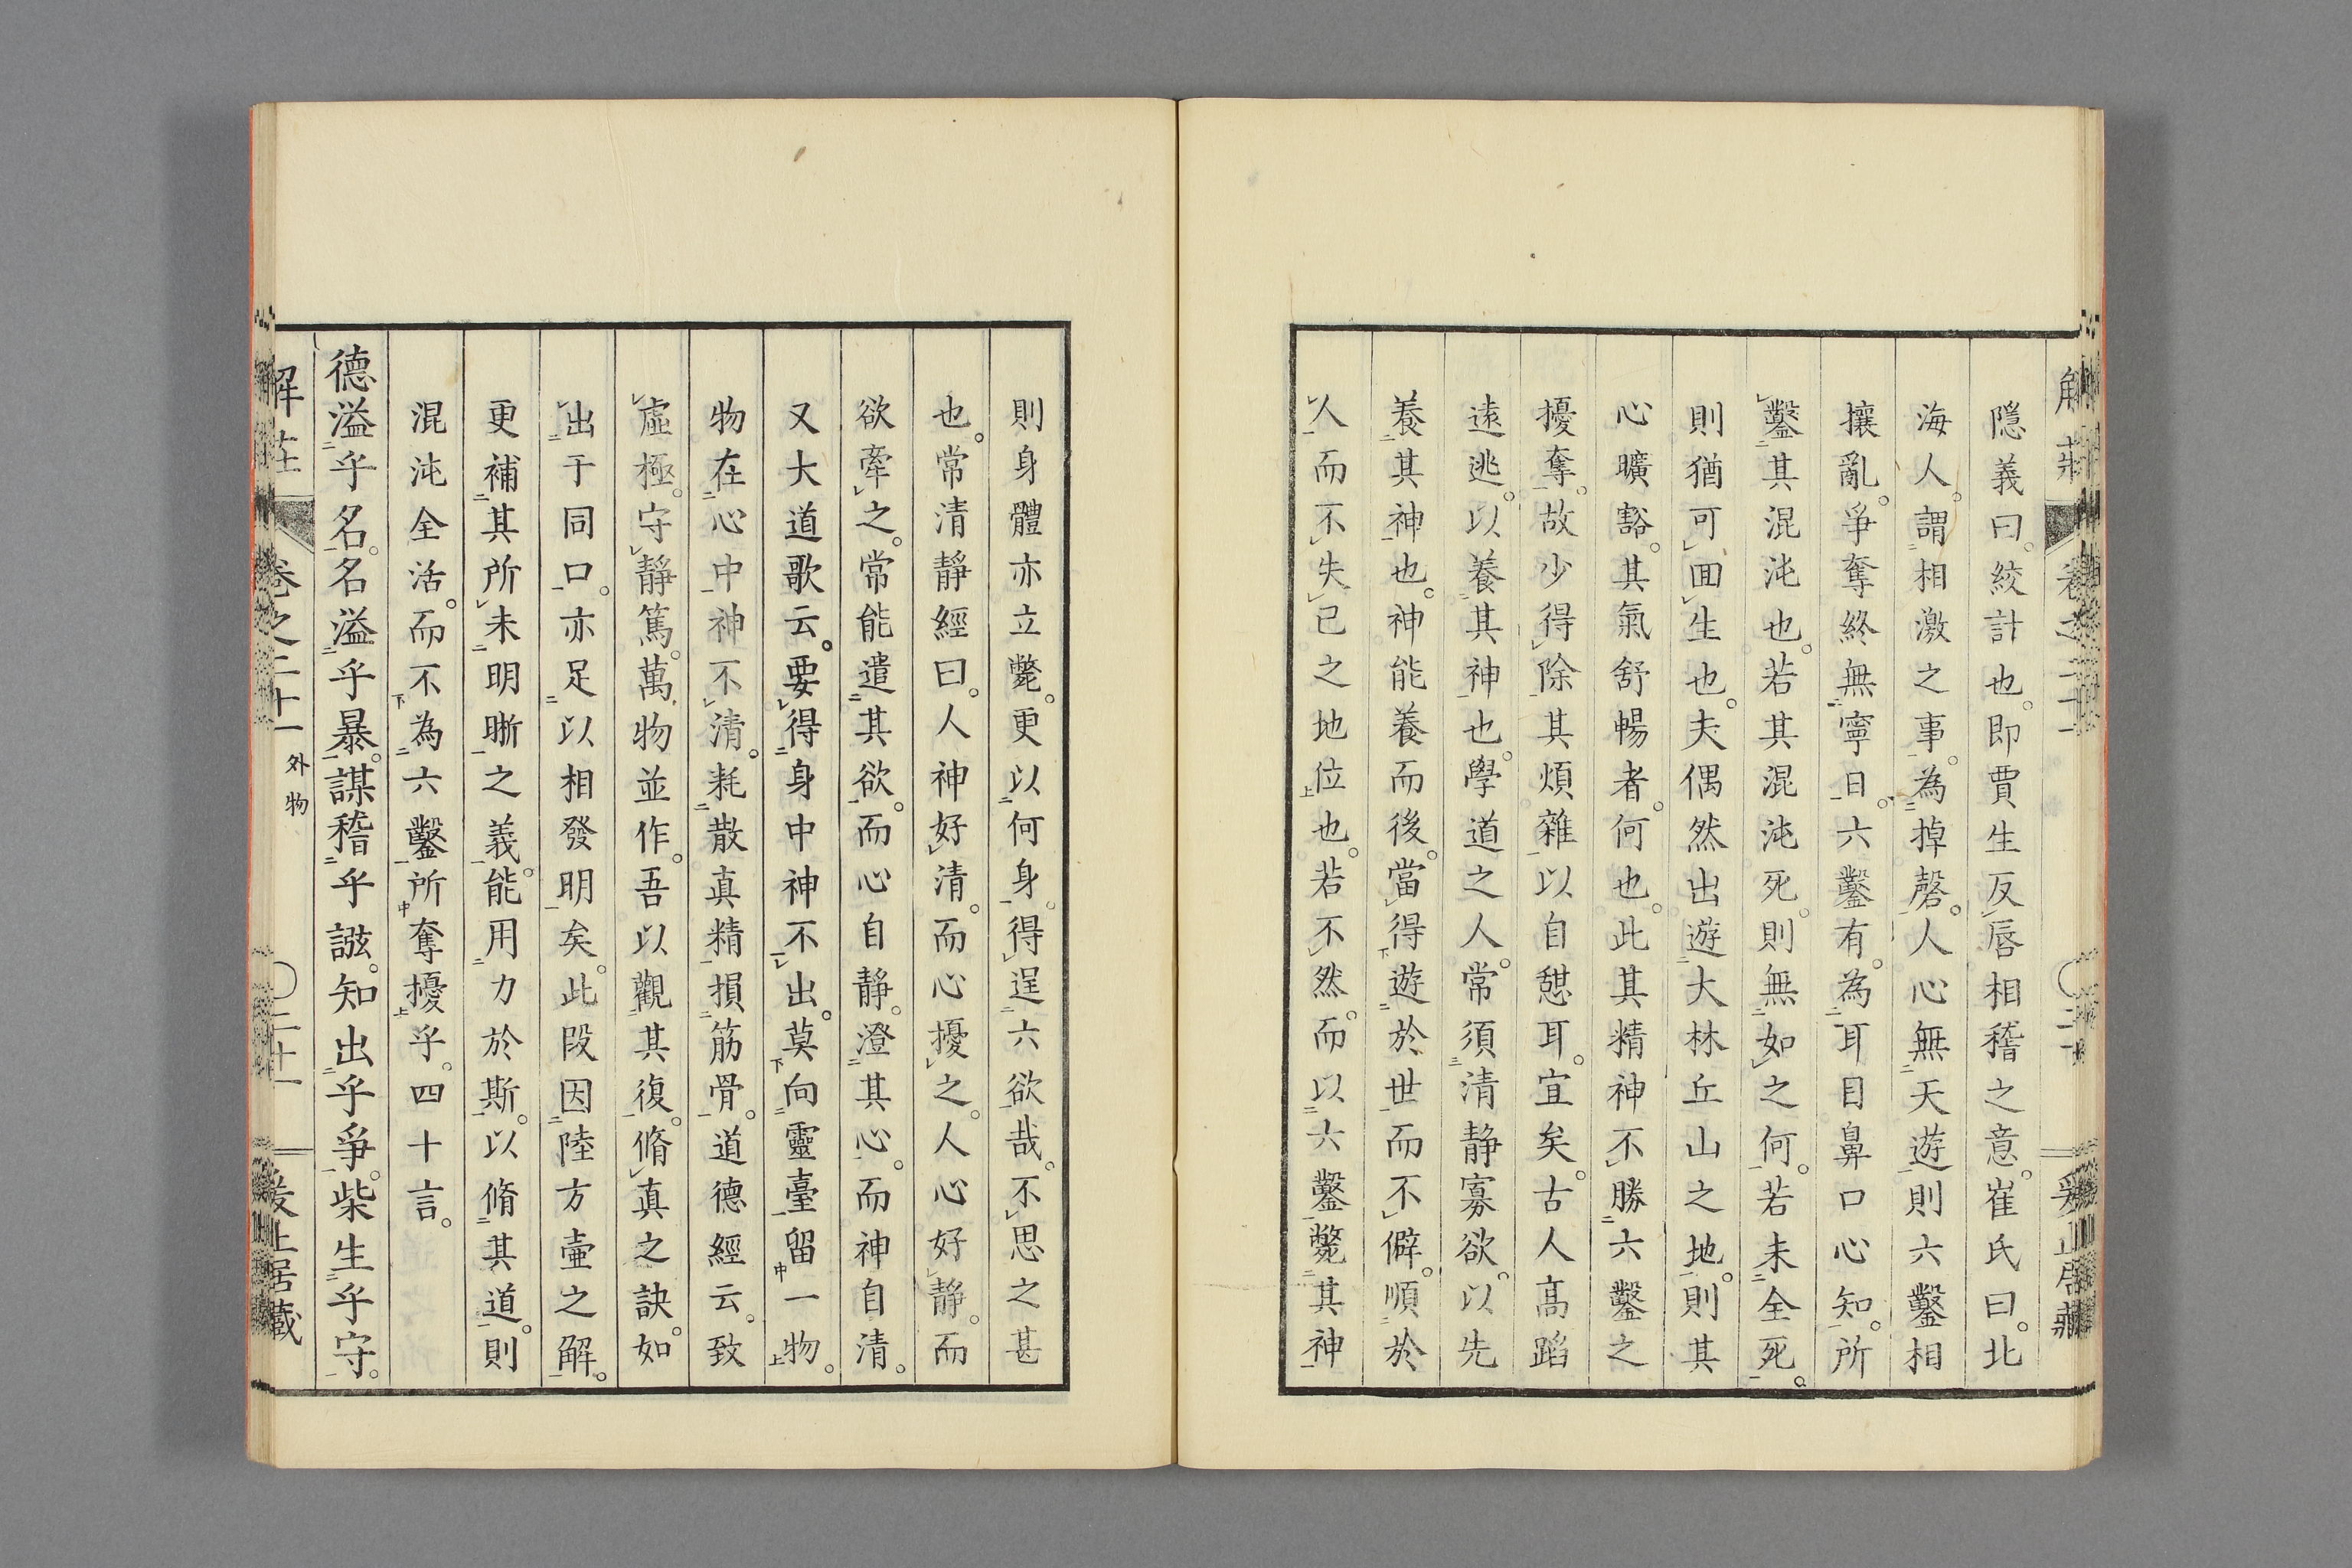 隱義曰。絞計也。即賈生反唇相稽之意。崔氏曰。北
海人。謂相激之事。為掉磬。人心無天遊。則六鑿相
攘亂。爭奪終無寧日。六鑿有。為耳目鼻口心知。所
鑿其混沌也。若其混沌死。則無如之何。若未全死。
則猶可回生也。夫偶然出遊大林丘山之地。則其
心曠豁。其氣舒暢者。何也。此其精神不勝六鑿之
擾奪。故少得除其煩雜。以自憇耳。宜矣。古人高蹈
遠逃。以養其神也。學道之人。常須清静寡欲。以先
養其神也。神能養而後。當得遊於世而不僻。順於
人而不失己之地位也。若不然。而以六鑿斃其神
則身體亦立斃。更以何身。得逞六欲哉。不思之甚
也。常清靜經曰。人神好清。而心擾之。人心好靜。而
欲牽之。常能遣其欲。而心自静。澄其心。而神自清。
又大道歌云。要得身中神不出。莫向靈臺留一物。
物在心中神不清。耗散真精損筋骨。道德經云。致
虛極。守靜篤。萬物並作。吾以觀其復。脩真之訣。如
出于同口。亦足以相發明矣。此段因陸方壷之解。
更補其所未明晰之義。能用力於斯。以脩其道。則
混沌全活。而不為六鑿所奪擾乎。四十言。
德溢乎名。名溢乎暴。謀稽乎誸。知出乎爭。柴生乎守。
卷之二十一 外物 〇二十一